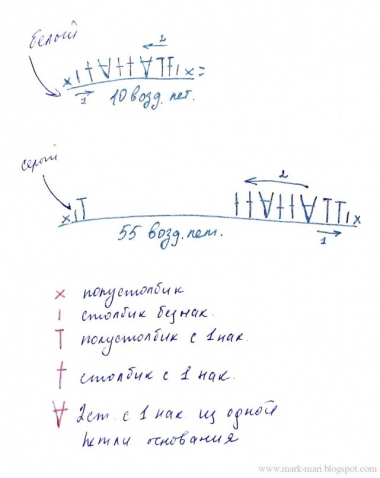 белый
2
1
10 возд. пет.
серый
2
55 возд. пет.
1
x полустолбик
столбик без нак.
полустолбик с 1 нак.
столбик с 1 нак.
2 ст. с 1 нак из одной
петли основания
www.mark-mari.blogspot.com